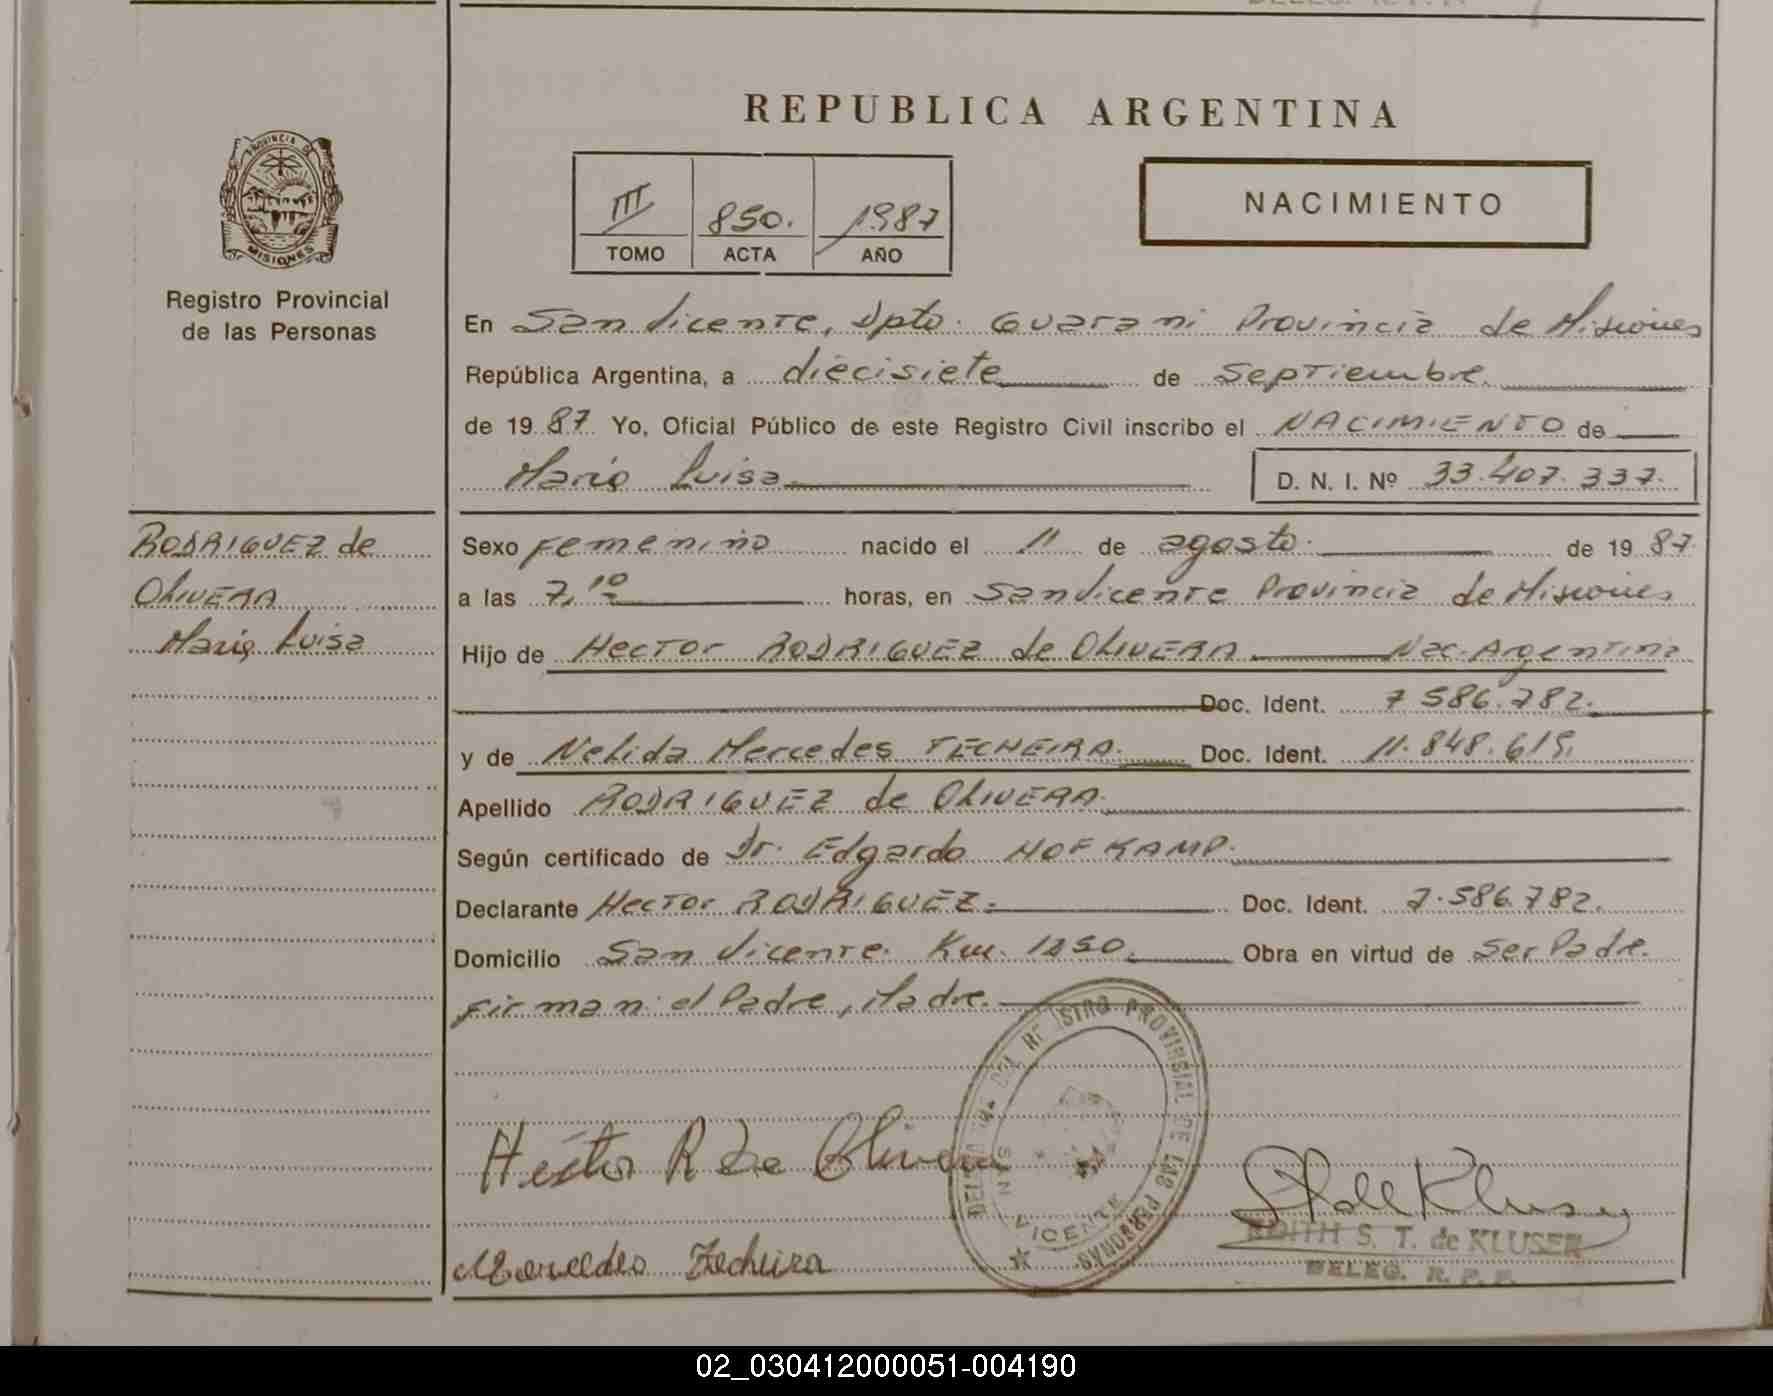 REPUBLICA ARGENTINA
PROVINCIA DE
MISIONES
Registro Provincial
de las Personas
III 850. 1987
TOMO ACTA AÑO
NACIMIENTO
En San Vicente, Dpto. Guarani Provincia de Misiones
República Argentina, a diecisiete de Septiembre.
de 1987. Yo, Oficial Público de este Registro Civil inscribo el NACIMIENTO de
Maria Luisa D. N. I. Nº 33.407.337.
RODRIGUEZ de
OLIVERA
Maria Luisa
Sexo femenino nacido el 11 de agosto. de 1987.
a las 7,10 horas, en San Vicente Provincia de Misiones
Hijo de Hector RODRIGUEZ de OLIVERA Nac. Argentina
Doc. Ident. 7.586.782.
y de Nelida Mercedes TECHEIRA. Doc. Ident. 11.848.619.
Apellido RODRIGUEZ de OLIVERA.
Según certificado de Dr. Edgardo HOFKAMP.
Declarante Hector RODRIGUEZ. Doc. Ident. 7.586.782.
Domicilio San Vicente. Km. 1250. Obra en virtud de ser Padre.
firman: el Padre, Madre.
DEL REGISTRO PROVINSIAL DE LAS PERSONAS
SAN VICENTE
Héctor R de Olivera
Mercedes Techeira
EDITH S. T. de KLUSER
DELEG. R. P. P.
02_030412000051-004190